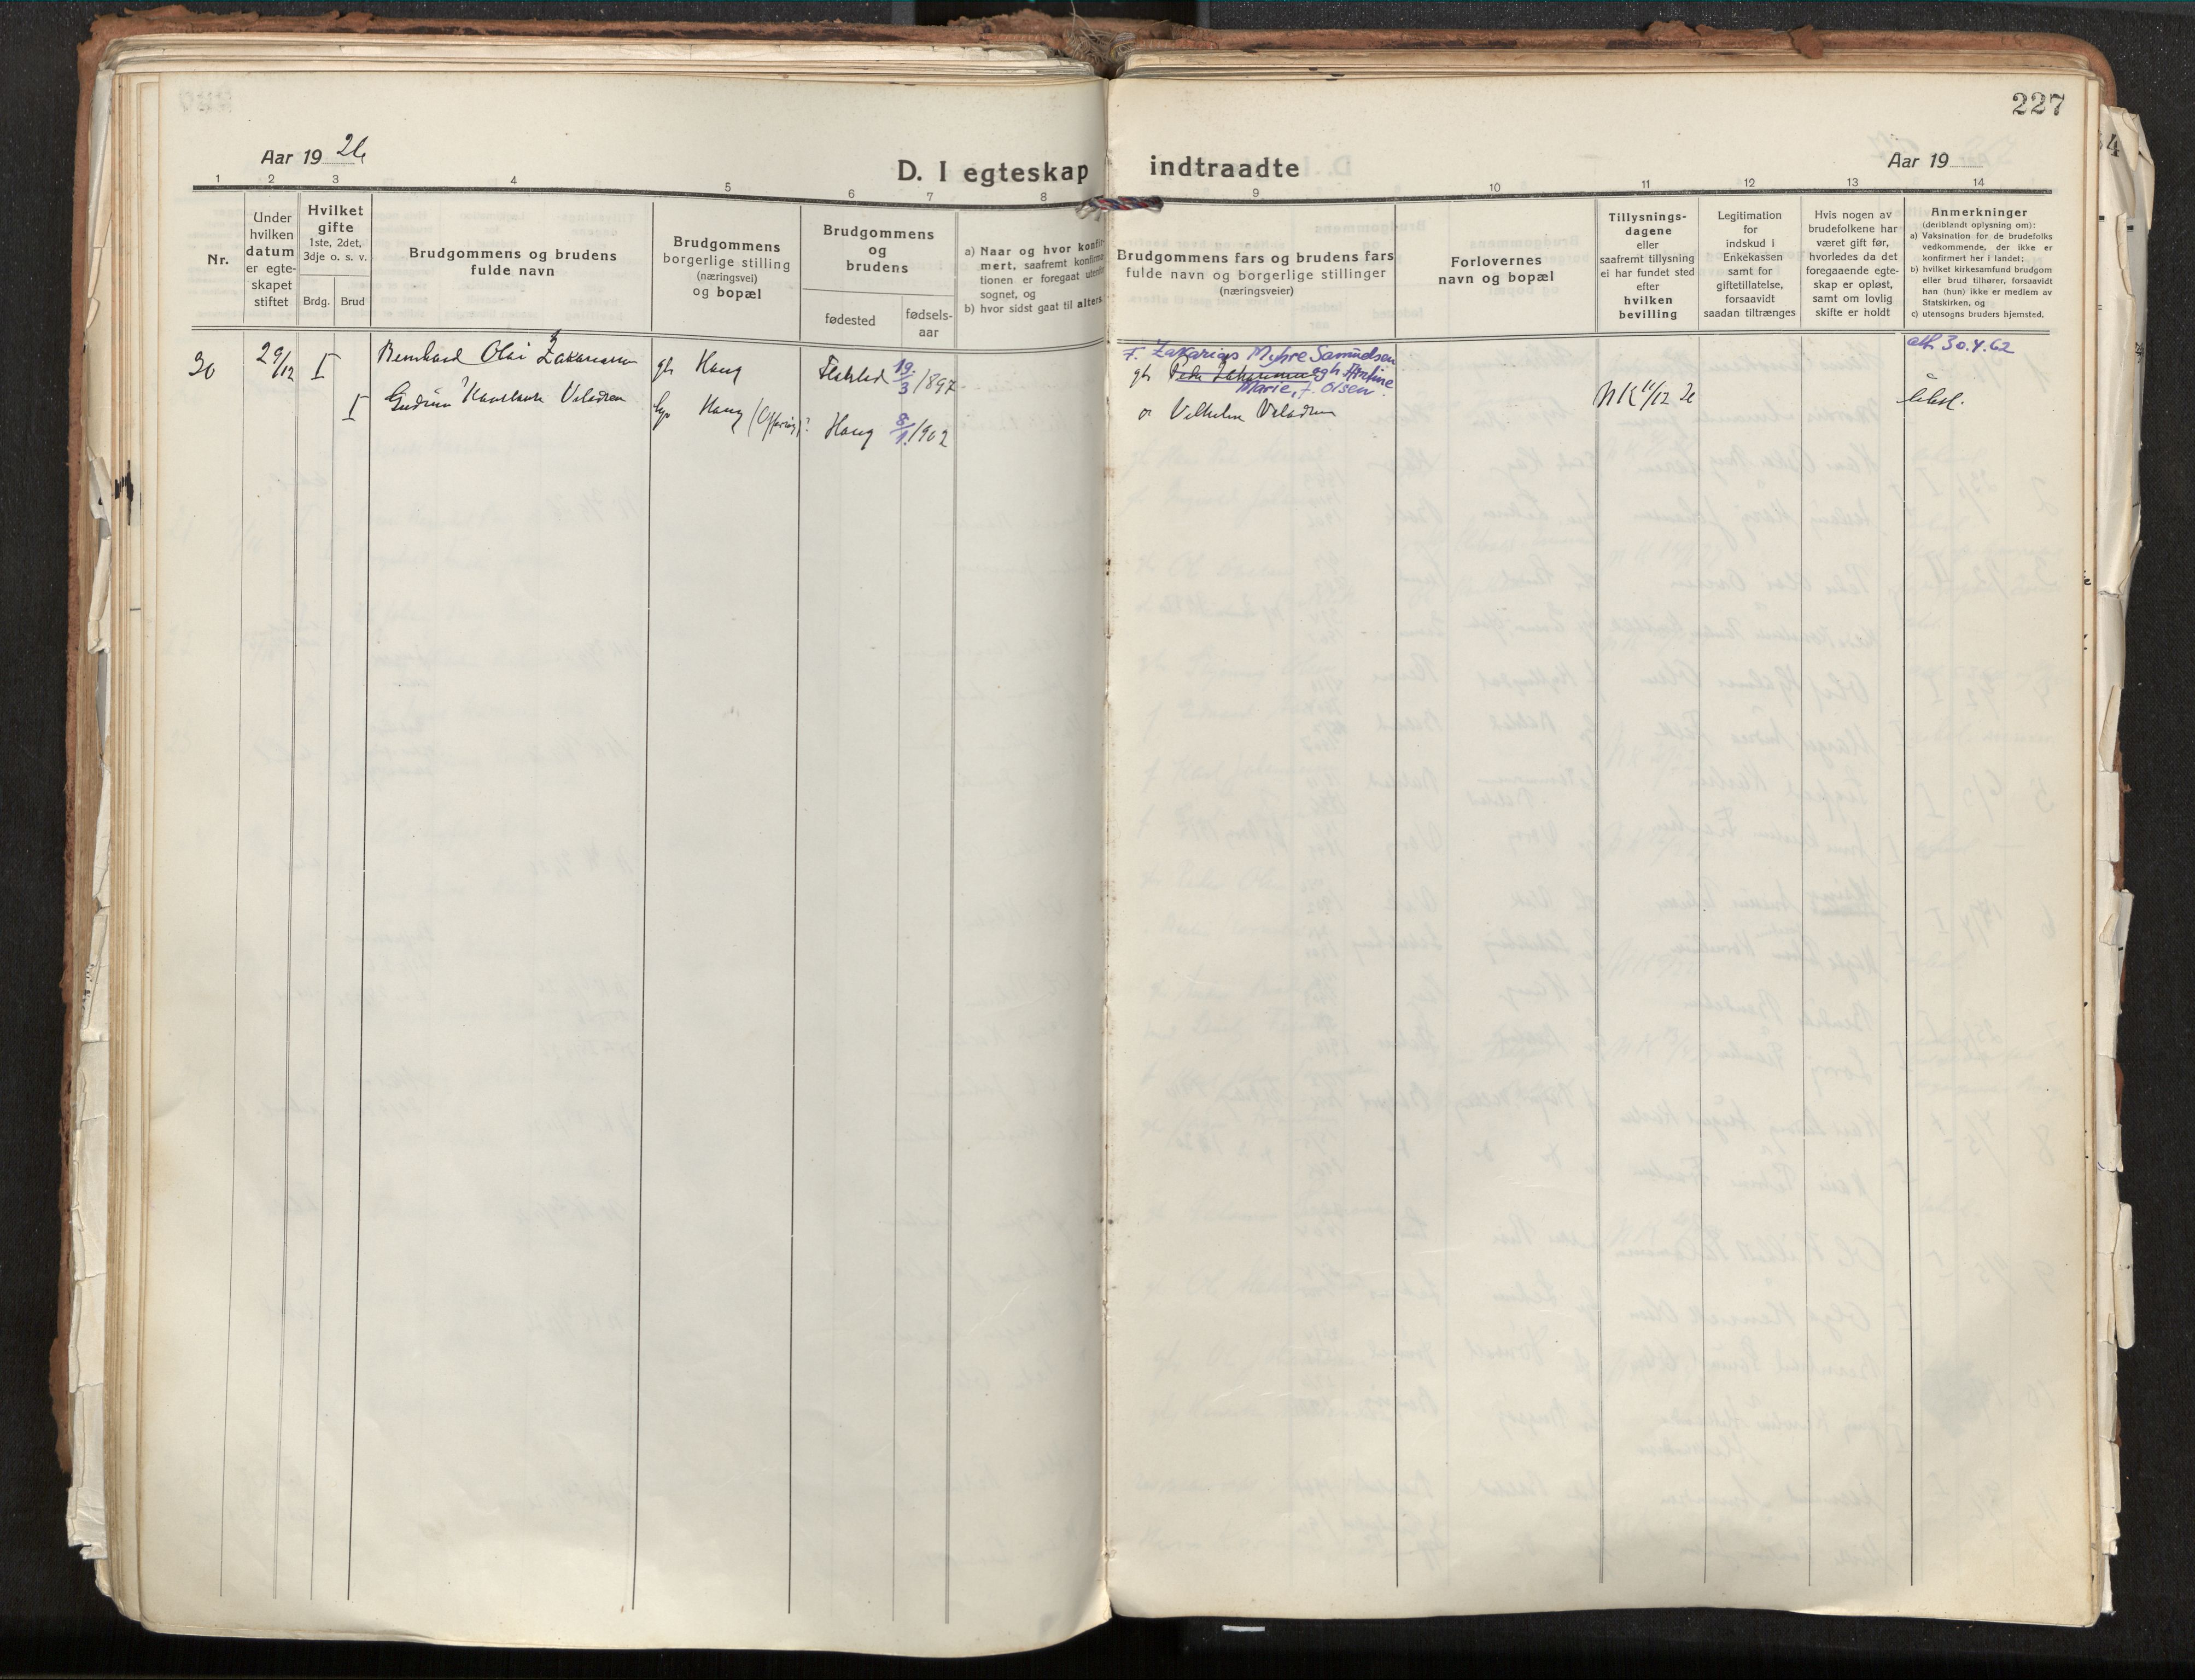 227
Aar 19 26
D. I egteskap indtraadte
Aar 19
1 2 3 4 5 6 7 8 9 10 11 12 13 14
Nr.
Under
hvilken
datum
er egte-
skapet
stiftet
Hvilket
gifte
1ste, 2det,
3dje o. s. v.
Brdg. Brud
Brudgommens og brudens
fulde navn
Brudgommens
borgerlige stilling
(næringsvei)
og bopæl
Brudgommens
og
brudens
fødested
fødsels-
aar
a) Naar og hvor konfir-
mert, saafremt konfirma-
tionen er foregaat utenfor
sognet, og
b) hvor sidst gaat til alters.
Brudgommens fars og brudens fars
fulde navn og borgerlige stillinger
(næringsveier)
Forlovernes
navn og bopæl
Tillysnings-
dagene
eller
saafremt tillysning
ei har fundet sted
efter
hvilken
bevilling
Legitimation
for
indskud i
Enkekassen
samt for
giftetillatelse,
forsaavidt
saadan tiltrænges
Hvis nogen av
brudefolkene har
været gift før,
hvorledes da det
foregaaende egte-
skap er opløst,
samt om lovlig
skifte er holdt
Anmerkninger
(deriblandt oplysning om):
a) Vaksination for de brudefolks
vedkommende, der ikke er
konfirmert her i landet;
b) hvilket kirkesamfund brudgom
eller brud tilhører, forsaavidt
han (hun) ikke er medlem av
Statskirken, og
c) utensogns bruders hjemsted.
30 29/12 I Bernhard Olai Zakariassen gb Haug Flakstad 19/3 1897
F. Zakarias Myhre Samuelsen
gb Peder Johannesen og h. Antine
Marie, f. Olsen.
att. 30.4.62
I Gudrun Konstanse Valadsen Haug Haug 8/1 1902
Vilhelm Valadsen
NK 11/12 26